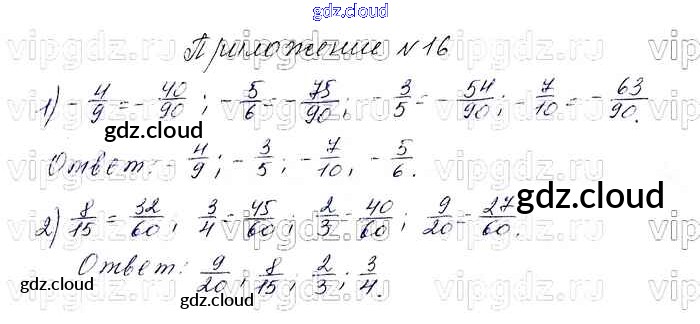 gdz.cloud
Приложение №16
1) -4/9 = -40/90 ; -5/6 = -75/90 ; -3/5 = -54/90 ; -7/10 = -63/90.
gdz.cloud
Ответ: -4/9 ; -3/5 ; -7/10 , -5/6.
gdz.cloud
2) 8/15 = 32/60 ; 3/4 = 45/60 ; 2/3 = 40/60 ; 9/20 = 27/60.
Ответ: 9/20 ; 8/15 ; 2/3 ; 3/4.
gdz.cloud
gdz.cloud